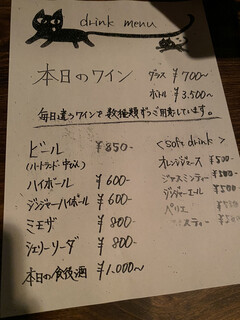 drink menu
本日のワイン グラス ¥700〜
ボトル ¥3,500〜
毎日違うワインを数種類ずつご用意しています。
ビール ¥850-
(ハートランド 中びん)
ハイボール ¥600-
ジンジャーハイボール ¥600
ミモザ ¥800-
シェリーソーダ ¥800-
本日の食後酒 ¥1,000〜
<Soft drink>
オレンジジュース ¥500-
ジャスミンティー ¥500-
ジンジャーエール ¥500
ペリエ
スティー